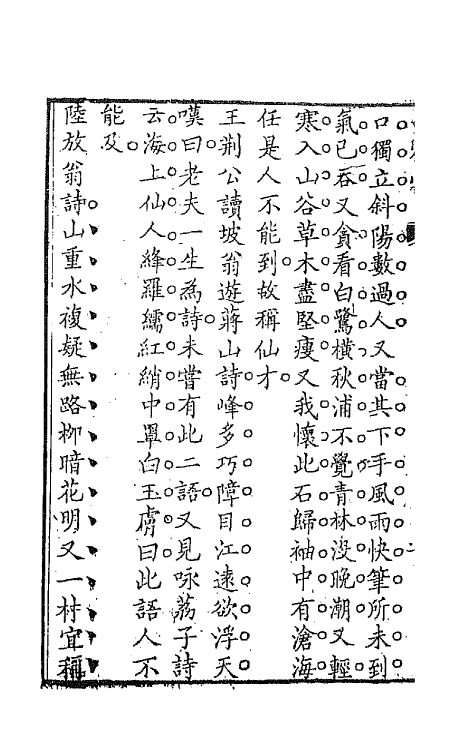 口獨立斜陽數過人又當其下手風雨快筆所未到
氣已吞又貪看白鷺橫秋浦不覺青林沒晚潮又輕
寒入山谷草木盡堅瘦又我懷此石歸袖中有滄海
任是人不能到故稱仙才
王荆公讀坡翁遊蔣山詩峰多巧障目江遠欲浮天
嘆曰老夫一生為詩未嘗有此二語又見咏荔子詩
云海上仙人絳羅襦紅綃中單白玉膚曰此語人不
能及
陸放翁詩山重水複疑無路柳暗花明又一村宜稱